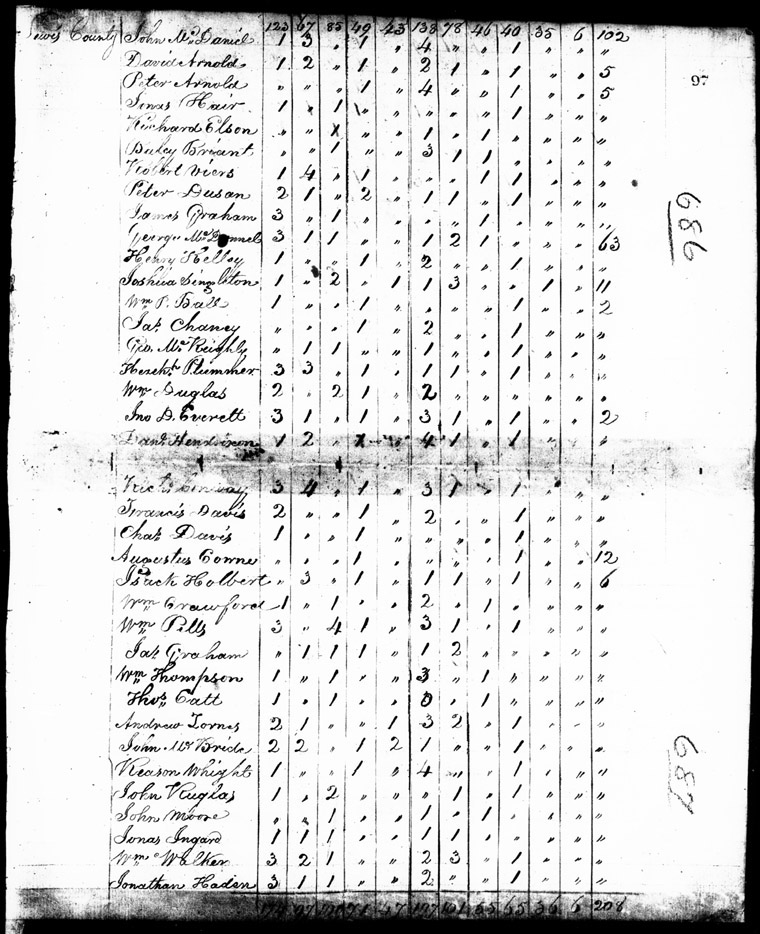 123 67 85 49 43 138 78 46 40 35 6 102
County John Mc Daniel 1 3 " 1 " 4 " " 1 " " "
David Arnold 1 2 " 1 " 2 1 " 1 " " 5
Peter Arnold " " " 1 " 4 " " 1 " " 5
97
Hair 1 " 1 " " " " " 1 " " "
Richard Elson " " 1 " " 1 " 1 " " " "
Briant " " 1 " " 3 1 1 " " " "
Robert Viers 1 4 " 1 " " " 1 1 " " "
Peter Dusan 2 1 " 2 " 1 1 " 1 " " "
686
James Graham 3 " 1 " " " " 1 " " " "
George Mc 3 1 1 " " 1 2 1 " " " 63
Henry Kelley 1 " " 1 " 2 " " 1 " " "
Joshua Singleton 1 " 2 " 1 1 3 " " 1 " 11
Wm P. Ball 1 " " 1 " " " " 1 " " 2
Jas. Chaney " " " 1 " 2 " " 1 " " "
Geo. Mc " 1 1 " " 1 " " 1 " " "
Plummer 3 3 " 1 " 1 1 " 1 " " "
Wm Duglas 2 " 2 1 " 2 " " " " " "
Jno D. Everett 3 1 " 1 " 3 1 " 1 " " 2
Danl. Hendixon 1 2 " 1 " 4 1 " 1 " " "
3 4 " 1 " 3 1 " 1 " " "
Francis Davis 2 " " 1 " 2 " " 1 " " "
Chas. Davis 1 " " 1 " " " " 1 " " "
Augustus " " " 1 " " " " 1 " " 12
Isack Holbert " 3 " 1 " 1 1 " 1 " " 6
Wm Crawford 1 " 1 " " 2 " 1 " " " "
Wm Pells 3 " 4 1 " 3 1 " 1 " " "
Jas. Graham " 1 1 1 " 1 2 " " " " "
Wm Thompson 1 " 1 " " 3 " 1 " " " "
Thos. Catt 1 " 1 " " " 1 " " " "
Andrew Tornes 2 1 " " 1 3 2 " 1 " " "
John Mc Bride 2 2 " 1 2 1 " " 1 " " "
687
Reason Whight 1 " " 1 " 4 " " 1 " " "
John Ruglas 1 " 2 " " " 1 " 1 " " "
John Moore " " 1 " " 1 " 1 " " " "
Jonas Ingard 1 1 1 " " 1 1 " " " " "
Wm Walker 3 2 1 " " 2 3 " 1 " " "
Jonathan Haden 3 1 1 " " 2 " " 1 " " "
71 47 177 101 55 65 36 6 208